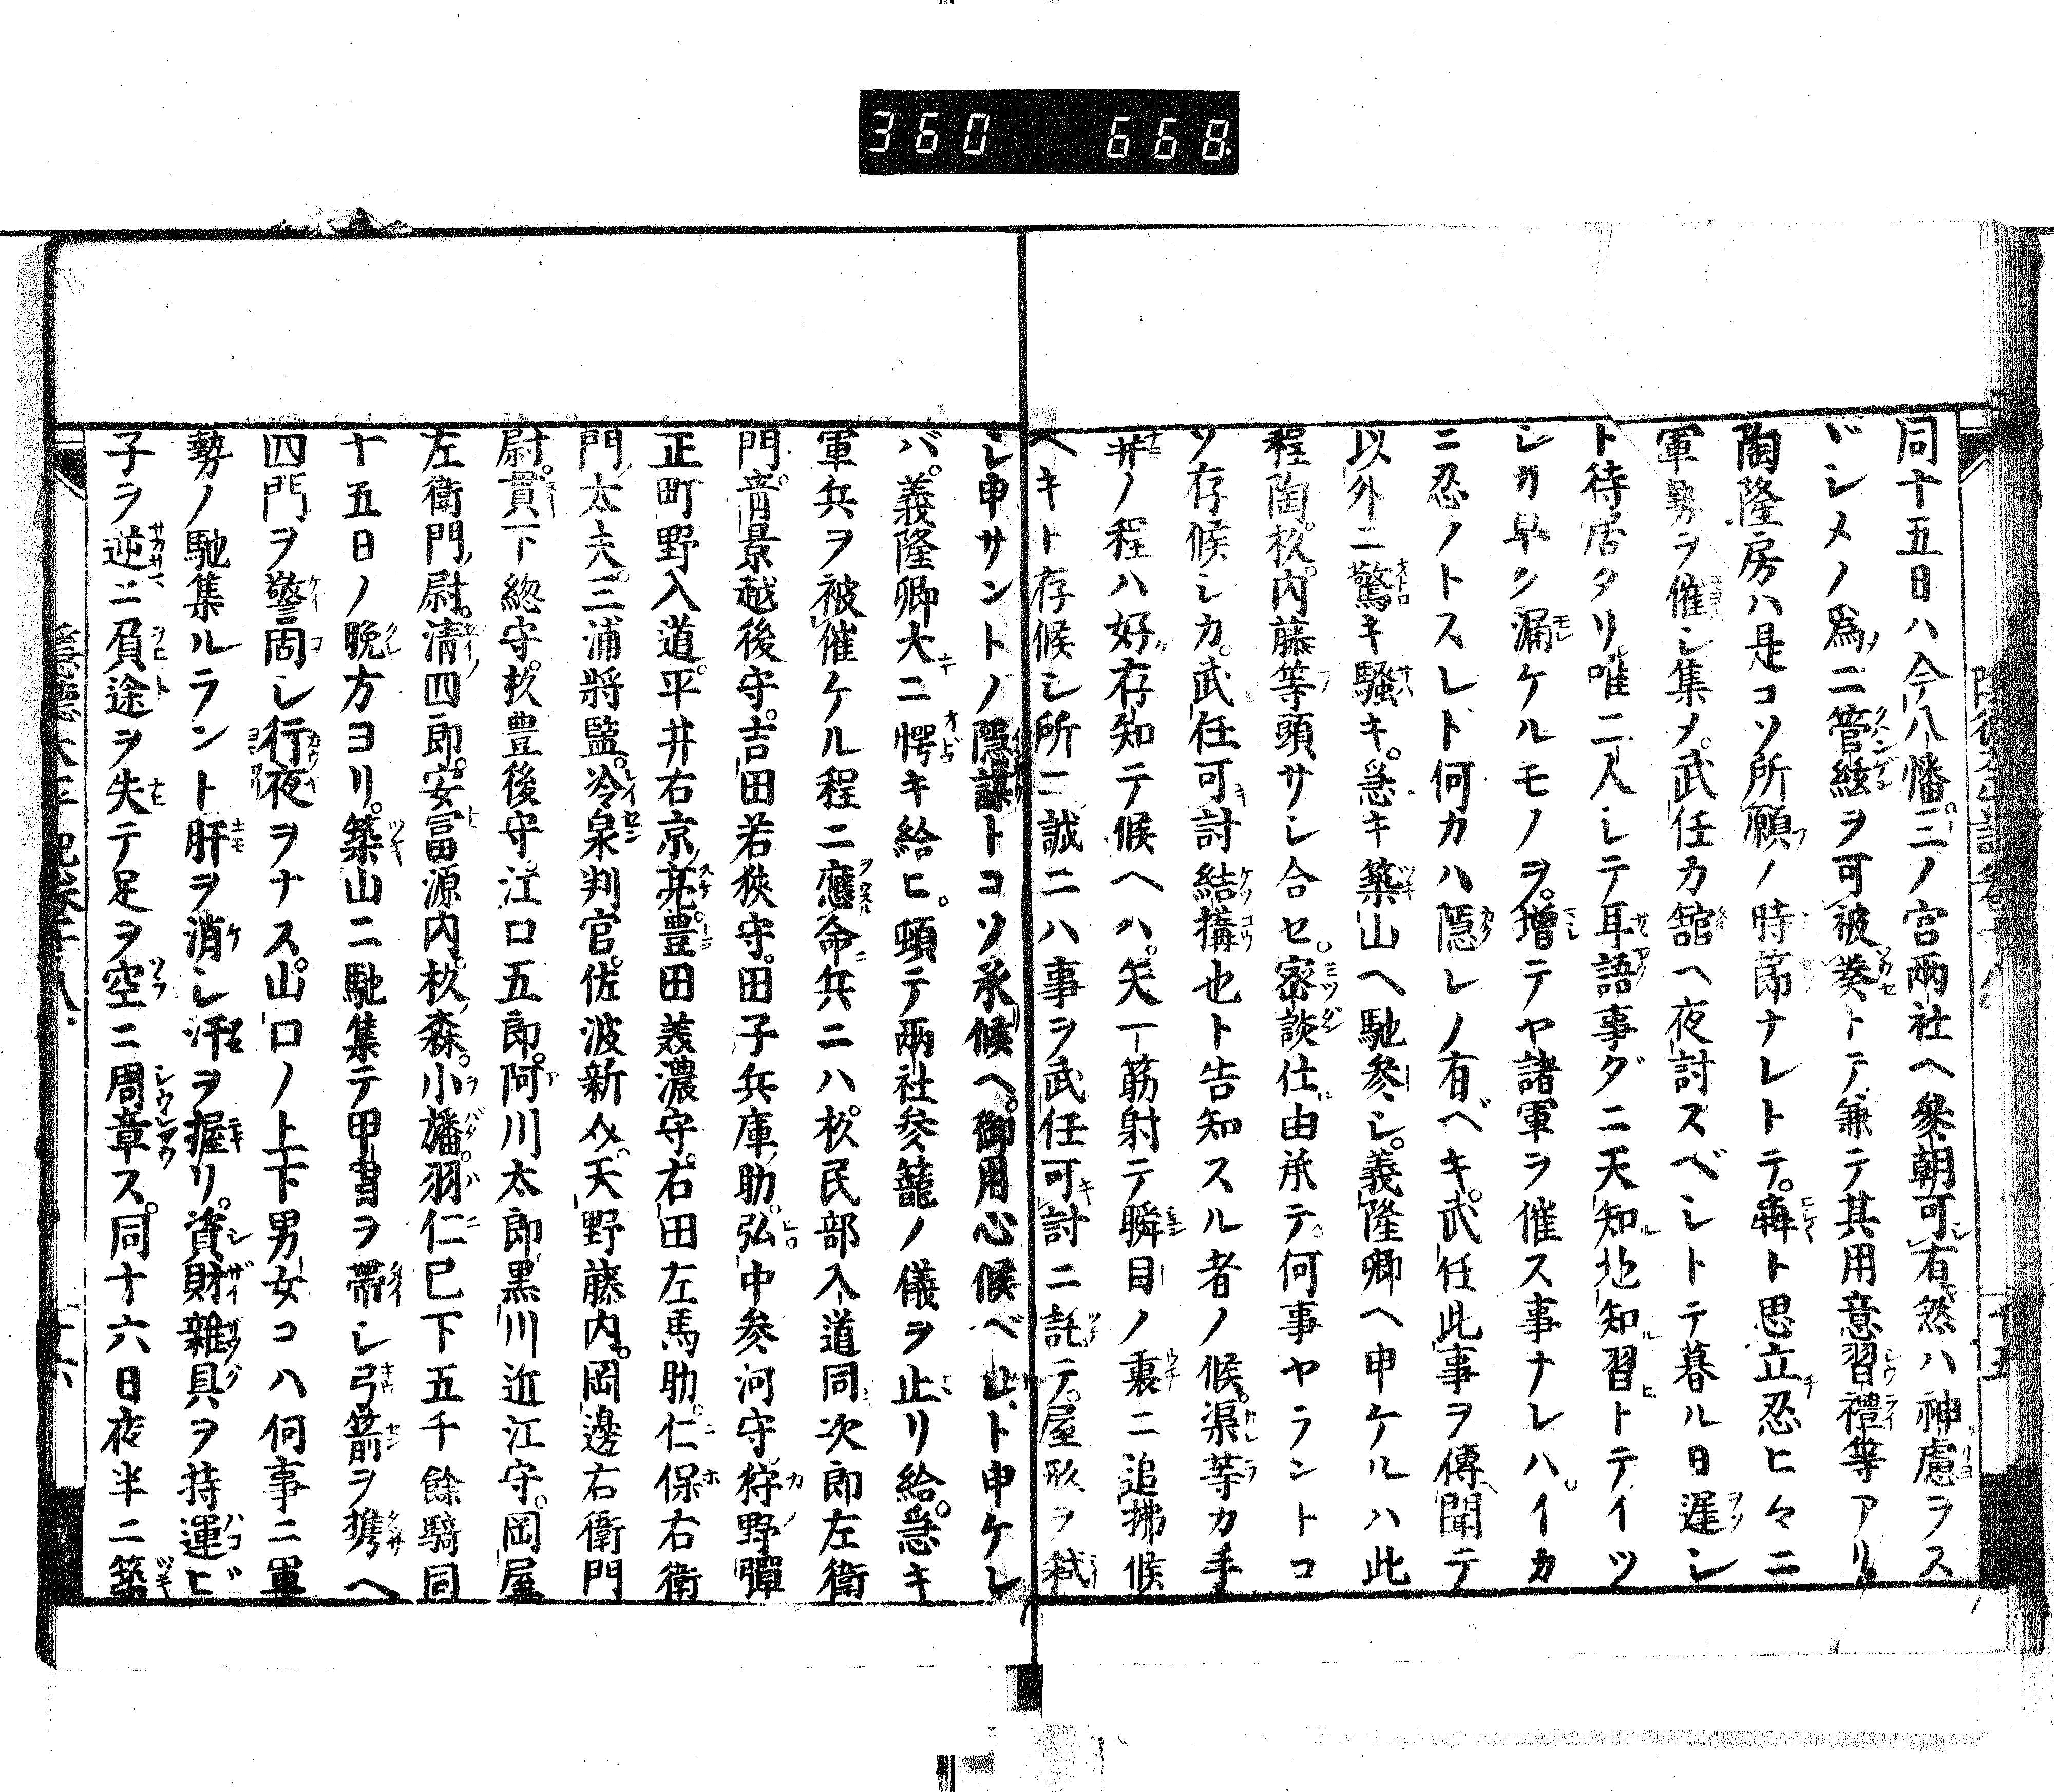 360 668
同十五日ハ今八幡三ノ宮兩社ヘ参朝可有然ハ神慮ヲス
ヾシメノ爲ニ管絃ヲ可被奏トテ兼テ其用意習禮等アリ
陶隆房ハ是コソ所願ノ時節ナレトテ犇ト思立忍ヒ々ニ
軍勢ヲ催シ集メ武任カ舘ヘ夜討スベシトテ暮ル日遅シ
ト待居タリ唯二人シテ耳語事ダニ天知地知習トテイツ
シカ早ク漏ケルモノヲ增テヤ諸軍ヲ催ス事ナレハイカ
ニ忍ノトスレト何カハ隱レノ有ベキ武任此事ヲ傳聞テ
以外ニ驚キ騒キ急キ築山ヘ馳参シ義隆卿ヘ申ケルハ此
程陶杦内藤等頭サシ合セ密談仕由承テ何事ヤラントコ
ソ存候シカ武任可討結構也ト告知スル者ノ候渠等カ手
井ノ程ハ好存知テ候ヘハ矢一筋射テ瞬目ノ裏ニ追拂候
ヘキト存候シ所ニ誠ニハ事ヲ武任可討ニ託テ屋形ヲ弑
シ申サントノ隱謀トコソ承候ヘ御用心候ベシト申ケレ
バ義隆卿大ニ愕キ給ヒ頓テ兩社参籠ノ儀ヲ止リ給急キ
軍兵ヲ被催ケル程ニ應命兵ニハ杦民部入道同次郎左衛
門音景越後守吉田若狹守田子兵庫助弘中参河守狩野彈
正町野入道平井右京亮豊田美濃守右田左馬助仁保右衛
門太夫三浦將監冷泉判官佐波新《天野藤内岡邊右衛門
尉貫下総守杦豊後守江口五郎阿川太郎黒川近江守岡屋
左衛門尉清四郎安冨源内杦森小旛羽仁已下五千餘騎同
十五日ノ晩方ヨリ築山ニ馳集テ甲冑ヲ帶シ弓箭ヲ携ヘ
四門ヲ警固シ行夜ヲナス山口ノ上下男女コハ何事ニ軍
勢ノ馳集ルラント肝ヲ消シ汗ヲ握リ資財雜具ヲ持運ビ
子ヲ逆ニ負途ヲ失テ足ヲ空ニ周章ス同十六日夜半ニ築